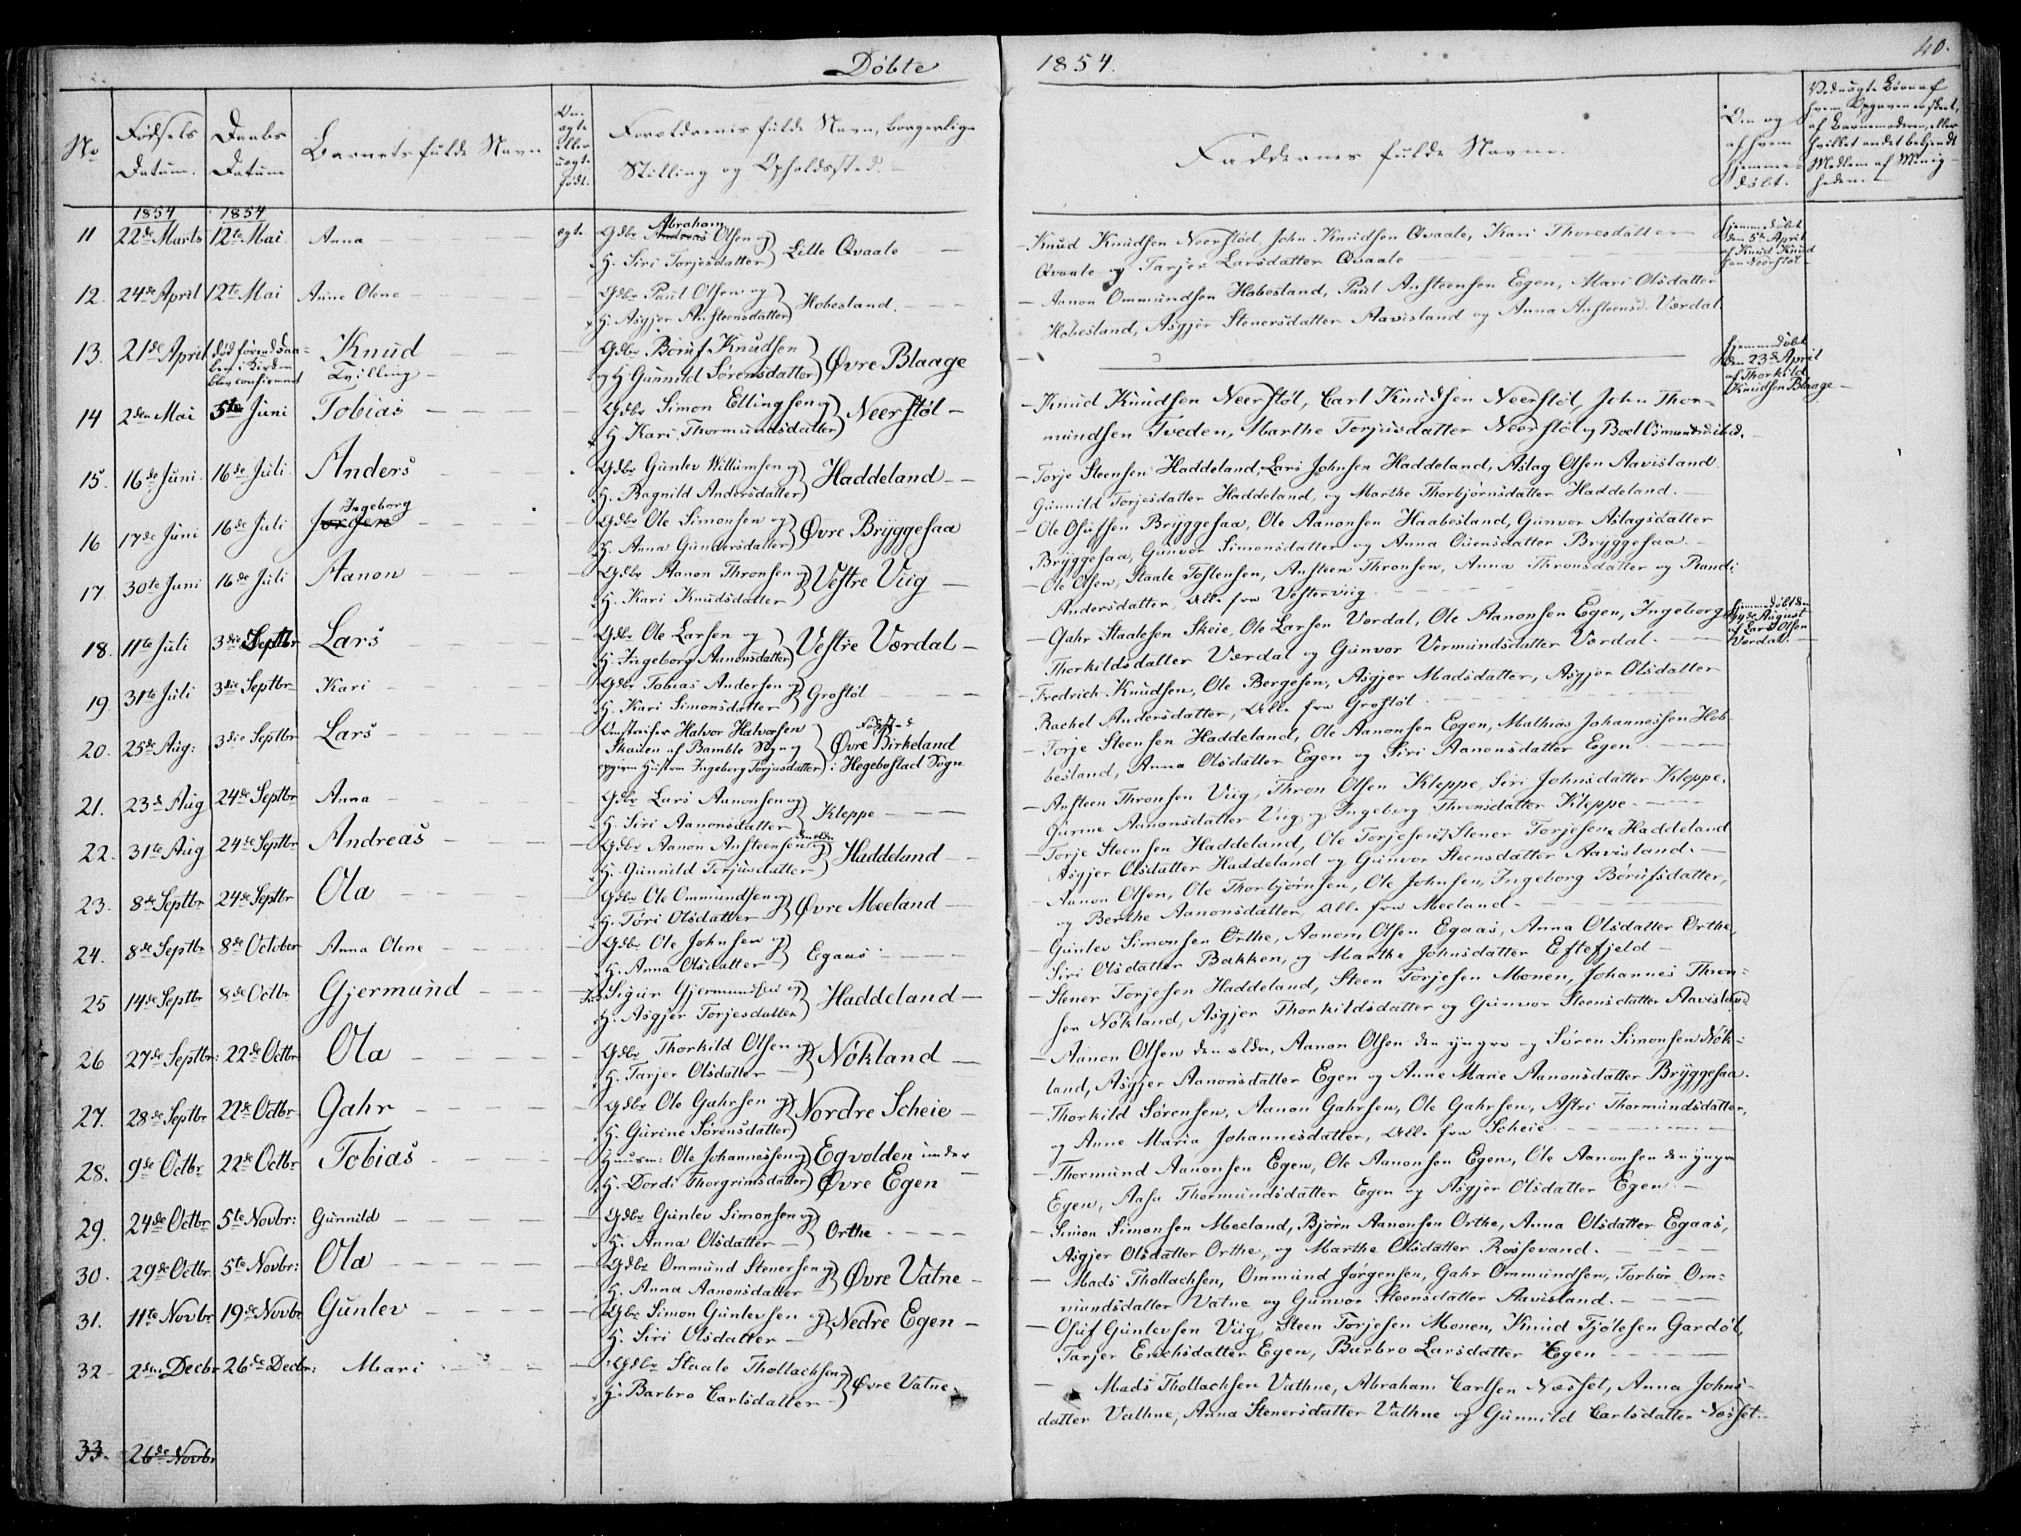 Døbte
1854.
40.
No
Fødsels
Datum.
Daabs
Datum
Barnets fulde Navn
Om
ægte
eller
uægte
født.
Forældrenes fulde Navn, borgerlige
Stilling og Opholdssted.
Faddernes fulde Navne.
Om og
af hvem
hjemme-
døbt.
Medlem af Menig-
heden.
1854 1854
11 22de Marts 12te Mai. Anna ægte
Gdbr Andreas Abraham Olsen og
H. Siri Torjesdatter Lille Qvaale
Knud Knudsen Neerstøl, John Knudsen Qvaale, Kari Thoresdatter
Qvaale og Tarjer Larsdatter Qvaale
hjemmedøbt
den 5te April
af Knud Knud
sen Neerstøl
12. 24de April 12te Mai Anne Olene
Gdbr Paul Olsen og
H. Asgjer Ansteensdatter Hobesland.
Aanon Ommundsen Hobesland, Paul Ansteensen Egen, Mari Olsdatter
Hobesland, Asgjer Stenersdatter Aavisland og Anna Ansteensd. Værdal
13. 21de April død førend Daa-
ben i Kirken
blev confirmeret
Knud
Tvilling
Gdbr Børuf Knudsen
og H. Gunnild Sørensdatter Øvre Blaage
hjemmedøbt
den 23de April
af Thorkild
Knudsen Blaage
14 2den Mai 5te Juni Tobias
Gdbr Simon Ellingsen og
H. Kari Thormundsdatter Neerstøl
Knud Knudsen Neerstøl, Carl Knudsen Neerstøl, John Thor-
mundsen Tveden, Marthe Torjusdatter Neerstøl og Boel Osmundsd. ibid.
15. 16de Juni. 16de Juli Anders
Gdbr Gunlev Willumsen og
H. Ragnild Andersdatter Haddeland
Torje Steensen Haddeland, Lars Johnsen Haddeland, Aslag Olsen Aavisland
Gunnild Torjesdatter Haddeland, og Marthe Thorbjørnsdatter Haddeland.
16 17de Juni 16de Juli Jørgen Ingeborg
Gdbr Ole Simonsen og
H. Anna Gundersdatter Øvre Bryggesaa
Ole Osufsen Bryggesaa, Ole Aanonsen Haabesland, Gunvor Aslagsdatter
Bryggesaa, Gunvor Simonsdatter og Anna Ouensdatter Bryggesaa.
17. 30te Juni 16de Juli Aanon
Gdbr Aanon Thronsen og
H. Kari Knudsdatter Vestre Viig
Ole Olsen, Staale Tostensen, Ansteen Thronsen, Anna Thronsdatter og Randi
Andersdatter, Alle fra Vestreviig
18. 11te Juli 3die Septbr Lars
Gdbr Ole Larsen og
H. Ingeborg Aanonsdatter Vestre Værdal
Gahr Staalesen Skeie, Ole Larsen Værdal, Ole Aanonsen Egen, Ingeborg
Thorkildsdatter Værdal og Gunvor Vermundsdatter Værdal.
hjemmedøbt den
August
af Lars Olsen
Værdal.
19. 31te Juli 3die Septbr Kari
Gdbr Tobias Andersen og
H. Kari Simonsdatter Grostøl
Fredrich Knudsen, Ole Bergesen, Asgjer Madsdatter, Asgjer Olsdatter
Rachel Andersdatter, Alle fra Grostøl.
20. 25de Aug: 3die Septbr Lars
Halvor Halvorsen
Skauen af Bamble Sogn og
Hustru Ingeborg Torjusdatter
Fødested
Øvre Birkeland
i Hegebostad Sogn
Torje Steensen Haddeland, Ole Aanonsen Egen, Mathias Johannessen Hob-
besland, Anna Olsdatter Egen og Siri Aanonsdatter Egen
21. 23de Aug 24de Septbr Anna
Gdbr Lars Aanonsen og
H. Siri Aanonsdatter Kleppe
Ansteen Thronsen Viig, Thron Olsen Kleppe, Siri Johnsdatter Kleppe,
Gurine Aanonsdatter Viig og Ingeborg Thronsdatter Kleppe.
22. 31te Aug 24de Septbr Andreas
Gdbr Aanon Ansteensen den eldre og
H. Gunnild Torjusdatter Haddeland
Torje Steensen Haddeland, Ole Torjesen, Stener Torjesen Haddeland
Asgjer Olsdatter Haddeland og Gunvor Steensdatter Aavisland.
23. 8de Septbr 24de Septbr Ola
Gdbr Ole Ommundsen og
H. Tøri Olsdatter Øvre Meeland
Aanon Olsen, Ole Thorbjørnsen, Ole Johnsen, Ingeborg Børufsdatter,
og Berthe Aanonsdatter, Alle fra Meeland.
24. 8de Septbr 8de October Anna Olene
Gdbr Ole Johnsen og
H. Anna Olsdatter Egaas
Gunlev Simonsen Orthe, Aanon Olsen Egaas, Anna Olsdatter Orthe,
Siri Olsdatter Bakken, og Marthe Johnsdatter Eftefjeld
25 14de Septbr 8de Octbr Gjermund
Sigur Gjermundsen og
H. Asgjer Torjesdatter Haddeland
Stener Torjesen Haddeland, Steen Torjesen Monen, Johannes Thron-
sen Nökland, Asgjer Thorkildsdatter og Gunvor Steensdatter Aavisland
26 27de Septbr: 22de Octbr Ola
Gdbr Thorkild Olsen og
H. Tarjer Olsdatter Nökland
Aanon Olsen den eldre, Aanon Olsen den yngre og Søren Simonsen Nök-
land, Asgjer Aanonsdatter Egen og Anne Marie Aanonsdatter Bryggesaa.
27. 28de Septbr 22de Octbr Gahr
Gdbr Ole Gahrsen og
H. Gurine Sørensdatter Nordre Scheie
Thorkild Sørensen, Aanon Gahrsen, Ole Gahrsen, Astri Thormundsdatter,
og Anne Maria Johannesdatter, Alle fra Scheie
28. 9de Octbr 22de Octbr Tobias
Huusm: Ole Johannessen og
H. Dordi Thorgrimsdatter
Egvolden under
Øvre Egen
Thormund Aanonsen Egen, Ole Aanonsen Egen, Ole Aanonsen den yngre
Egen, Aasa Thormundsdatter Egen og Asgjer Olsdatter Egen
29. 24de Octbr 5te Novbr: Gunnild
Gdbr Gunlev Simonsen og
H. Anna Olsdatter Orthe
Simon Simonsen Meeland, Bjørn Aanonsen Orthe, Anna Olsdatter Egaas,
Asgjer Olsdatter Orthe, og Marthe Olsdatter Rossevand.
30. 29de Octbr 5te Novbr: Ola
Gdbr Ommund Stenersen og
H. Anna Aanonsdatter Øvre Vatne
Mads Thollachsen, Ommund Jørgensen, Gahr Ommundsen, Torbør Om-
mundsdatter Vatne og Gunvor Steensdatter Aavisland.
31. 11te Novbr 19de Novbr Gunlev
Gdbr Simon Gunlevsen og
H. Siri Olsdatter Nedre Egen
Osuf Gunlevsen Viig, Steen Torjesen Monen, Knud Tjølesen Gardøl,
Tarjer Erichsdatter Egen, Barbro Larsdatter Egen
32 2den Decbr 26de Decbr: Mari
Gdbr Staale Thollachsen og
H. Barbro Carlsdatter Øvre Vatne
Mads Thollachsen Vathne, Abraham Carlsen Næsset, Anna Johns-
datter Vathne, Anna Stenersdatter Vathne og Gunnild Carlsdatter Næsset.
33. 26de Novbr